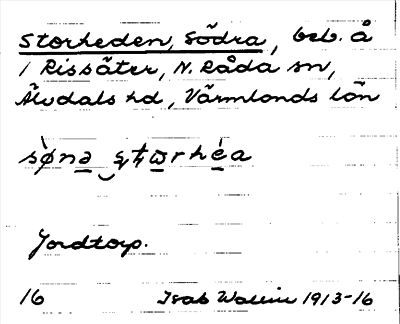 Storheden, Södra, beb. å
1 Rissäter, N. Råda sn,
Älvdals hd, Värmlands län
sø̀nə ʂʈɷrhéa
Jordtorp.
16 Isak Wallin 1913-16